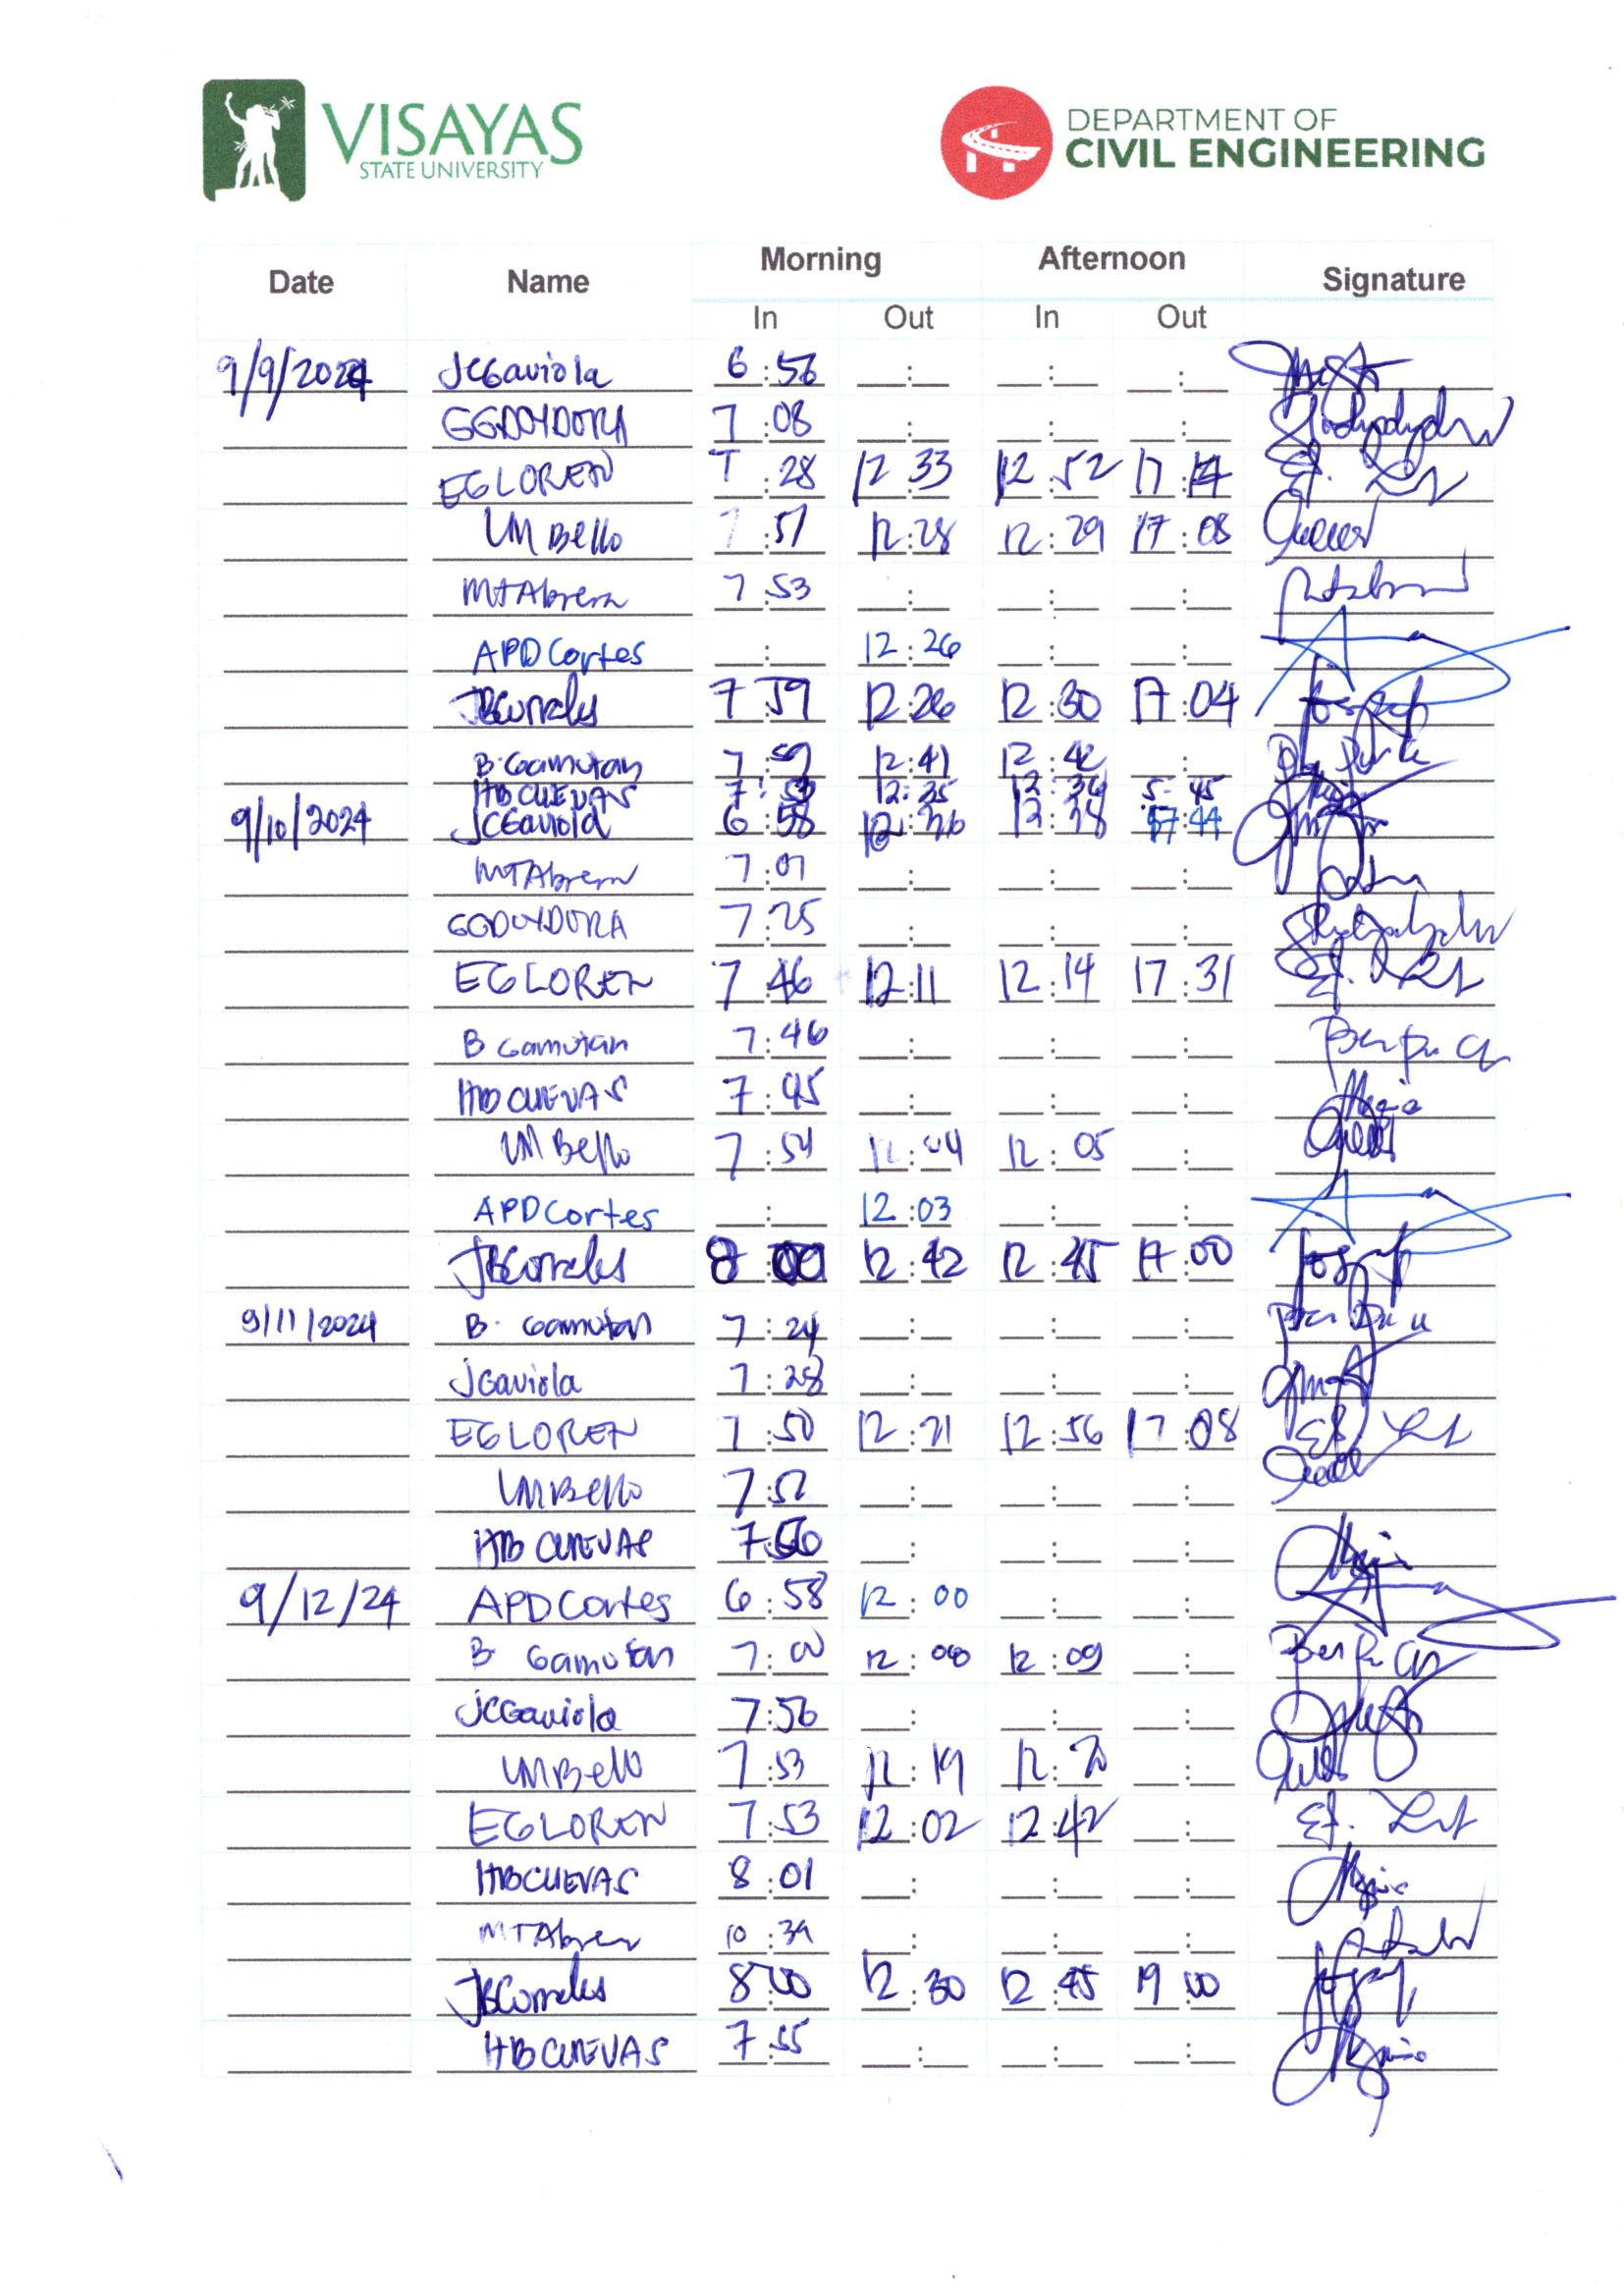 VISAYAS
STATE UNIVERSITY
DEPARTMENT OF
CIVIL ENGINEERING
Date Name Morning Afternoon Signature
In Out In Out
9/9/2024 JCGaviola 6:56
GGDOYDORA 7:08
EGLOREN 7:28 12:33 12:52 17:14
UMBello 7:51 12:28 12:29 17:08
MTAbrera 7:53
APDCortes 12:26
JBCorrales 7:59 12:26 12:30 17:04
B.Gamutan 7:59 12:41 12:42
HBCUEVAS 7:53 12:35 12:36 5:45
9/10/2024 JCGaviola 6:58 12:36 12:38 17:44
MTAbrera 7:01
GGDOYDORA 7:25
EGLOREN 7:46 12:11 12:14 17:31
B Gamutan 7:46
HBCUEVAS 7:45
UMBello 7:54 12:04 12:05
APDCortes 12:03
JBCorrales 8:00 12:42 12:45 17:00
9/11/2024 B. Gamutan 7:24
JGaviola 7:28
EGLOREN 7:50 12:21 12:56 17:08
UMBello 7:52
HBCUEVAS 7:56
9/12/24 APDCortes 6:58 12:00
B Gamutan 7:00 12:08 12:09
JCGaviola 7:56
UMBello 7:53 12:19 12:20
EGLOREN 7:53 12:02 12:42
HBCUEVAS 8:01
MTAbrera 10:39
JBCorrales 8:00 12:30 12:45 19:00
HBCUEVAS 7:55